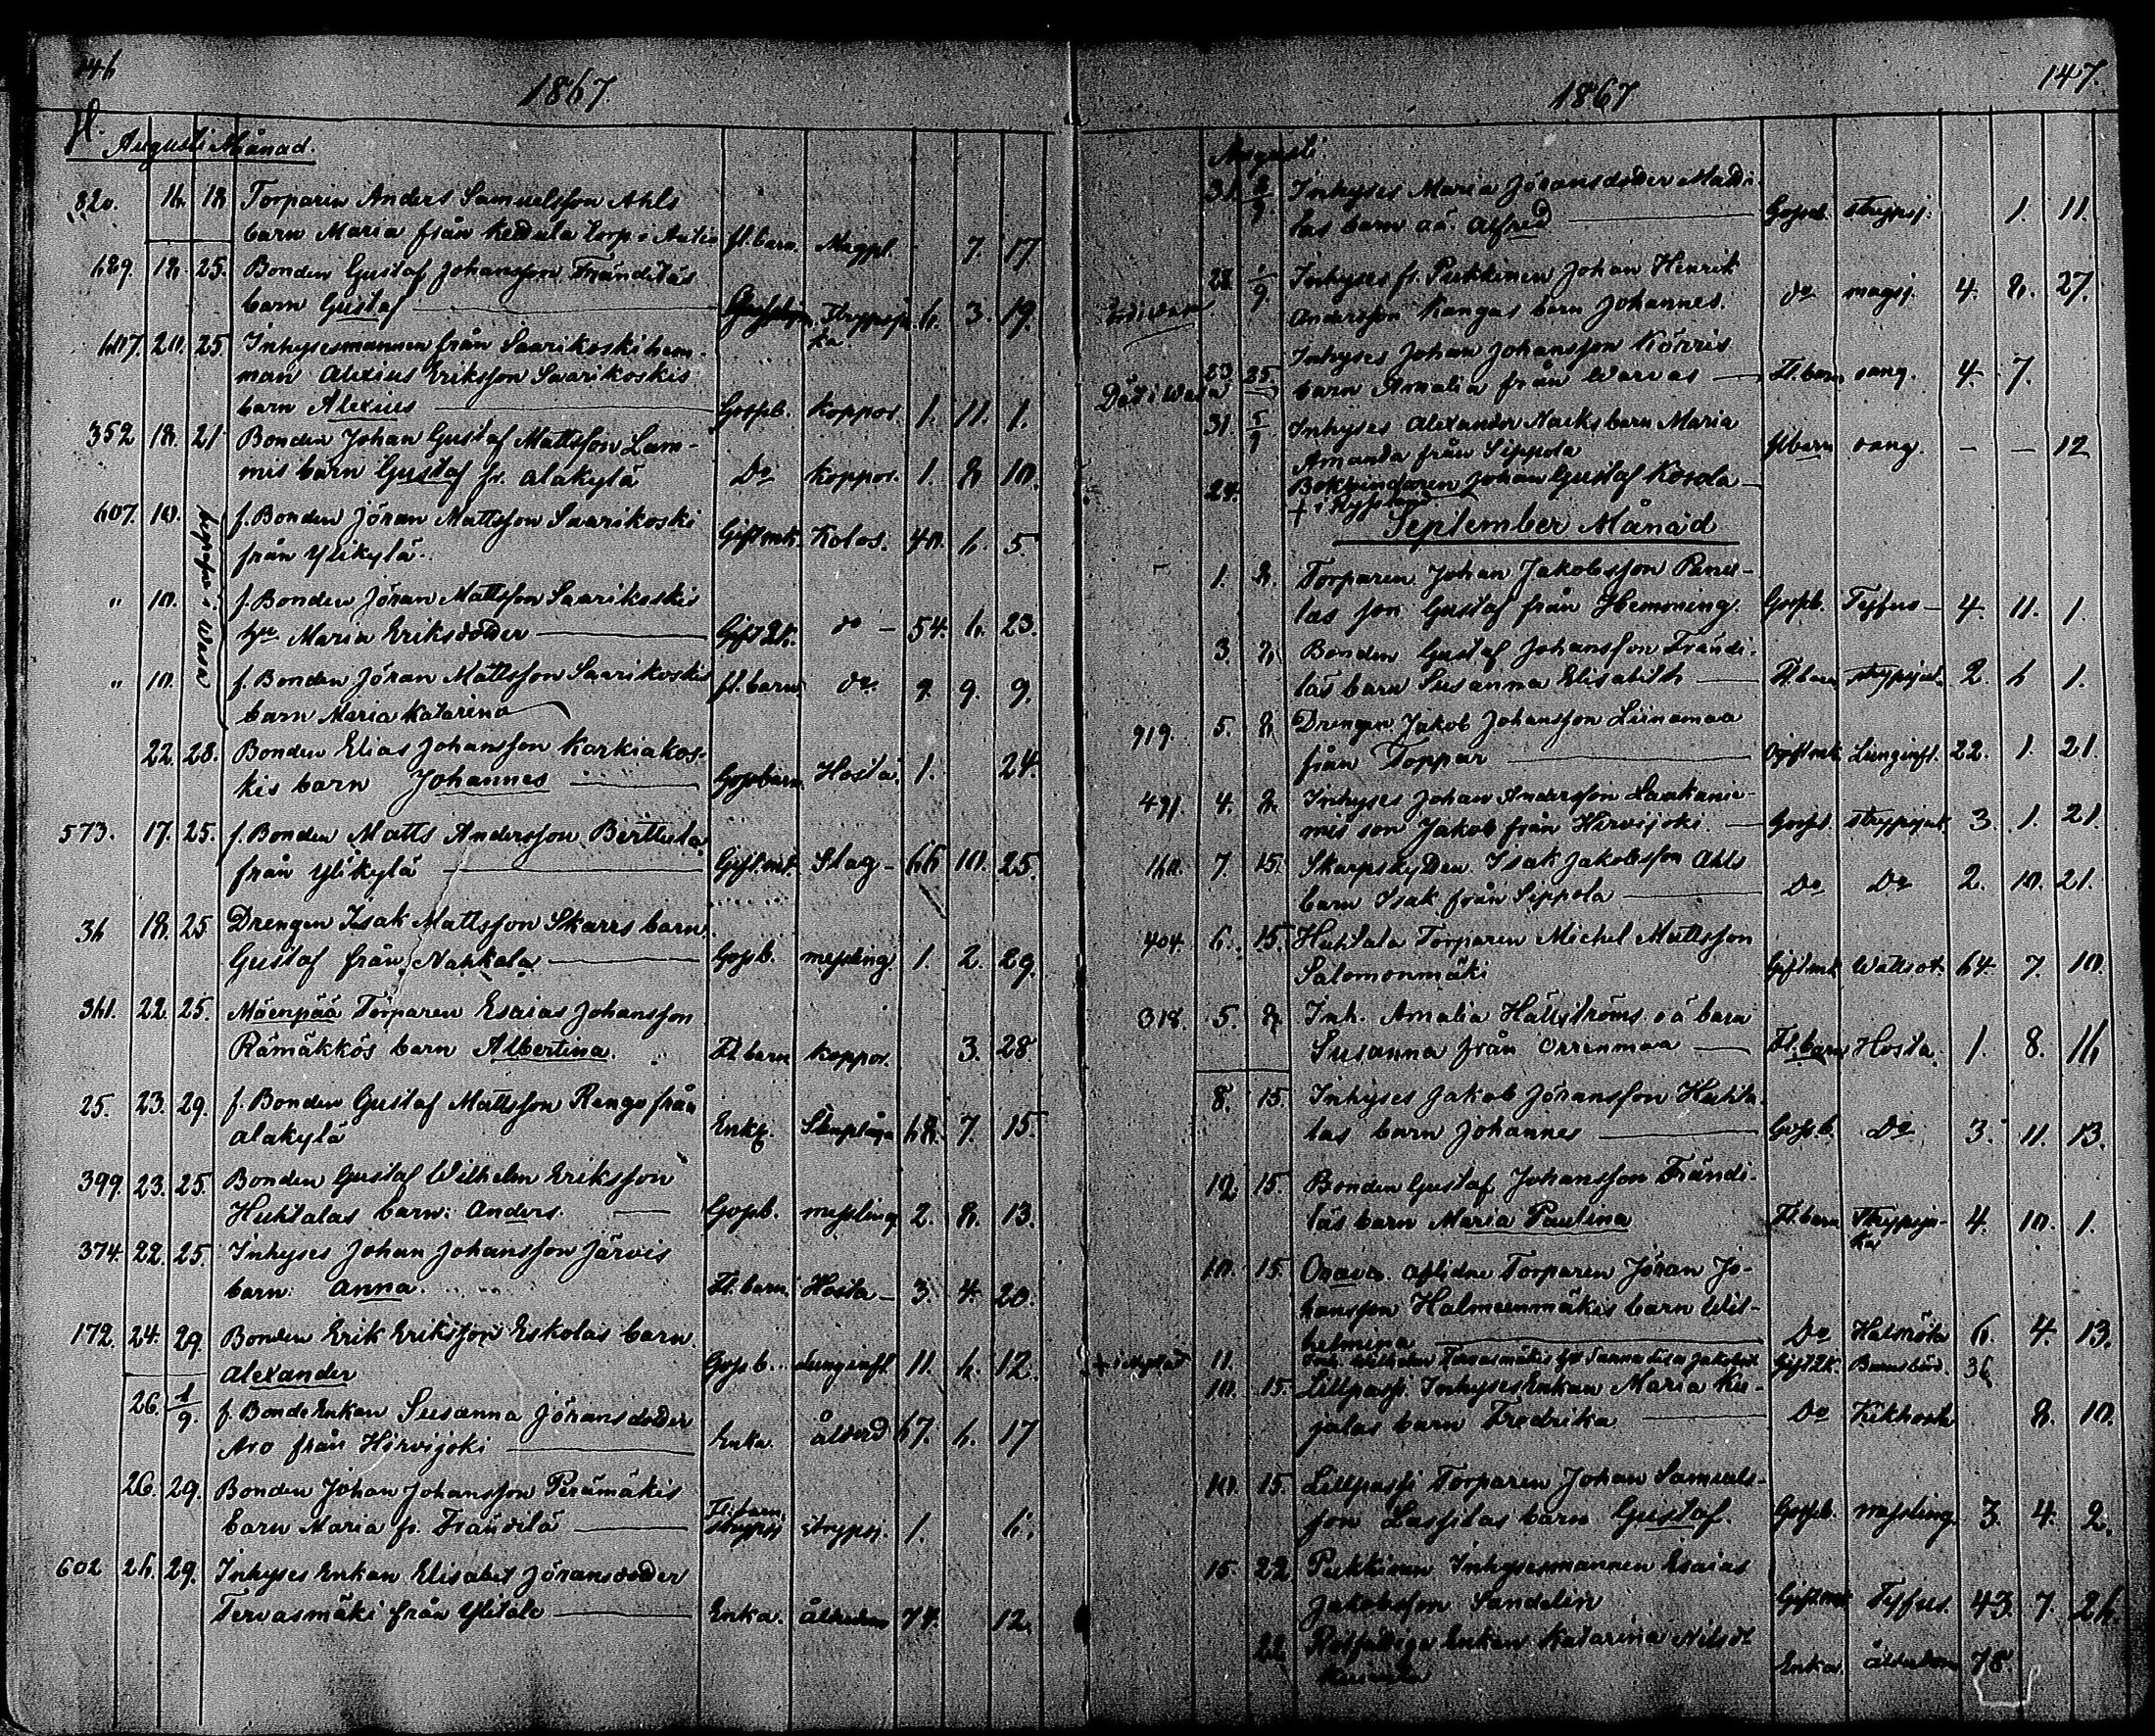 146
1867.
Augusti Månad.
820. 16. 18 Torparen Anders Samuelsson Ahls
barn Maria från Keddala torp i Autio fl. barn. Magpl. - 7. 17.
689. 18. 25. Bonden Gustaf Johansson Fränditäs
barn Gustaf Strypsju- 6. 3. 19.
ka
607. 20. 25. Inhysesmannen från Saarikoski hem-
man Alexius Eriksson Saarikoskis
barn Alexius Gossb. Koppor. 1. 11. 1.
352 18. 21 Bonden Johan Gustaf Mattsson Lam-
mis barn Gustaf fr. Alakylä Do Koppor. 1. 8. 10.
607. 10. f. Bonden Jöran Mattsson Saarikoski
från Ylikylä. Gift mk. Kolos. 40. 6. 5.
" 10. f. Bonden Jöran Mattsson Saarikoskis
hu Maria Eriksdoder Gift Qk. do - 54. 6. 23.
" 10. f. Bonden Jöran Mattsson Saarikoskis
barn Maria Katarina fl. barn do. 9. 9. 9.
22. 28. Bonden Elias Johansson Karkiakos-
kis barn Johannes Gossbarn Hosta. 1. 24.
573. 17. 25. f. Bonden Matts Andersson Berttula
från Ylikylä Gift. mk. Slag - 66 10. 25.
36 18. 25 Drengen Isak Mattsson Skarrs barn
Gustaf från Nahkala Gossb. messling. 1. 2. 29.
361. 22. 25. Mäenpää Torparen Esaias Johansson
Rämäkkös barn Albertina. Fl. barn koppor. 3. 28.
25. 23. 29. f. Bonden Gustaf Mattsson Rengo från
Alakylä Enkl. 68. 7. 15.
399. 23. 25. Bonden Gustaf Wilhelm Eriksson
Huhtalas barn: Anders. Gossb. messling 2. 8. 13.
374. 22. 25. Inhyses Johan Johansson Järvis
barn: Anna. Fl. barn. Hosta - 3. 4. 20.
172. 24. 29. Bonden Erik Eriksson Eskolas barn
Alexander Gossb. Lunginfl. 11. 6. 12.
26. 1/9. f. Bonde Enkan Susanna Jöransdoder
Aro från Hirvijoki Enka. ålderd 67. 6. 17
26. 29. Bonden Johan Johansson Perämäkis
barn Maria fr. Fränditä Fl. barn. strypsj. 1. 6.
602 26. 29. Inhyses Enkan Elisabet Jöransdoder
Tervasmäki från Ylitalo Enka. ålderdom 74. 12.
147.
1867
Augusti.
31. 8/9. Inhyses Maria Jöransdoder Madi-
las barn oä. Alfred Gossb. strypsj. 1. 11.
28 1/9. Inhyses fr. Pukkinen Johan Henrik
Andersson Kangas barn Johannes. do magsj. 4. 8. 27.
23 25. Inhyses Johan Johansson Körris
Död i Wasa barn Amalia från Warvas Fl. barn rang. 4. 7.
31. 1/9 Inhyses Alexander Nacks barn Maria
Amanda från Sippola fl barn rang. - - 12
24. Bokbindaren Johan Gustaf Kosola
September Månad
1. 8. Torparen Johan Jakobsson Panu-
las son Gustaf från Hemmning. Gossb. Tyfus - 4. 11. 1.
3. 8 Bonden Gustaf Johansson Frändi-
täs barn Susanna Elisabeth Fl. barn strypsjuk. 2. 6 1.
919. 5. 8 Drengen Jakob Johansson Liinamaa
från Toppar Ogift mk. Lunginfl. 22. 1. 21.
491 4. 8. Inhyses Johan Andersson Laakanie-
mis son Jakob från Hirvijoki. Gossb. strypsjuk. 3. 1. 21.
160. 7. 15. Skarpskytten Isak Jakobsson Ahls
barn Isak från Sippola Do Do 2. 10. 21.
404. 6. 15. Huhtala Torparen Michel Mattsson
Salomonmäki Gift mk Wattsot. 64. 7. 10.
318. 5. 8. Inh. Amalia Hällströms oä barn
Susanna från Orrenmaa Fl. barn Hosta 1. 8. 16
8. 15. Inhyses Jakob Jöransson Huhta-
las barn Johannes Gossb. Do 3. 11. 13.
10. 15. Bonden Gustaf Johansson Frändi-
täs barn Maria Paulina Fl. barn Strypsju- 4. 10. 1.
ka
10. 15. Orava. Aflidne Torparen Jöran Jo-
hansson Halmeenmäkis barn Wil-
helmina Do Halsröta 6. 4. 13.
11. Gift Qk. Barnsbörd. 36
10. 15. Lillpassi Inhyses Enkan Maria Ku-
jalas barn Fredrika Do Kikhosta 8. 10.
10. 15. Lillpassi Torparen Johan Samuels-
son Lassilas barn Gustaf. Gossb. messling. 3. 4. 2.
15. 22 Pukkinen Inhysesmannen Esaias
Jakobsson Sandelin Gift mk Tyfus. 43. 7. 26.
22 Rotfattiga Enkan Katarina Nilsdr
Enka. ålderdom 78.